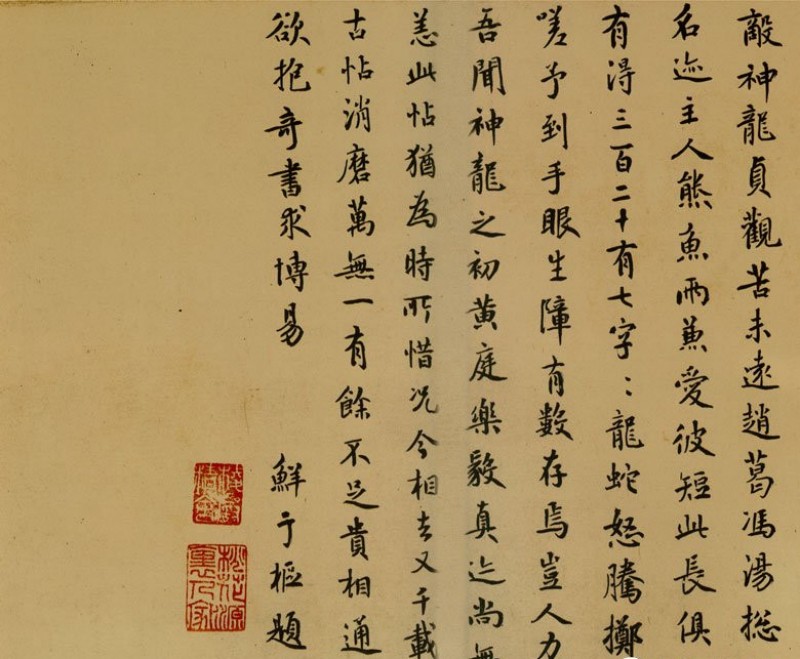 敵神龍貞觀苦未遠趙葛馮湯揔
名迹主人熊魚兩兼愛彼短此長俱
有得三百二十有七字〻龍蛇怒騰擲
嗟予到手眼生障有數存焉豈人力
吾聞神龍之初黄庭樂毅真迹尚無
恙此帖猶為時所惜况今相去又千載
古帖消磨萬無一有餘不足貴相通
欲抱奇書求博易 鮮于樞題
桃花源裏人家